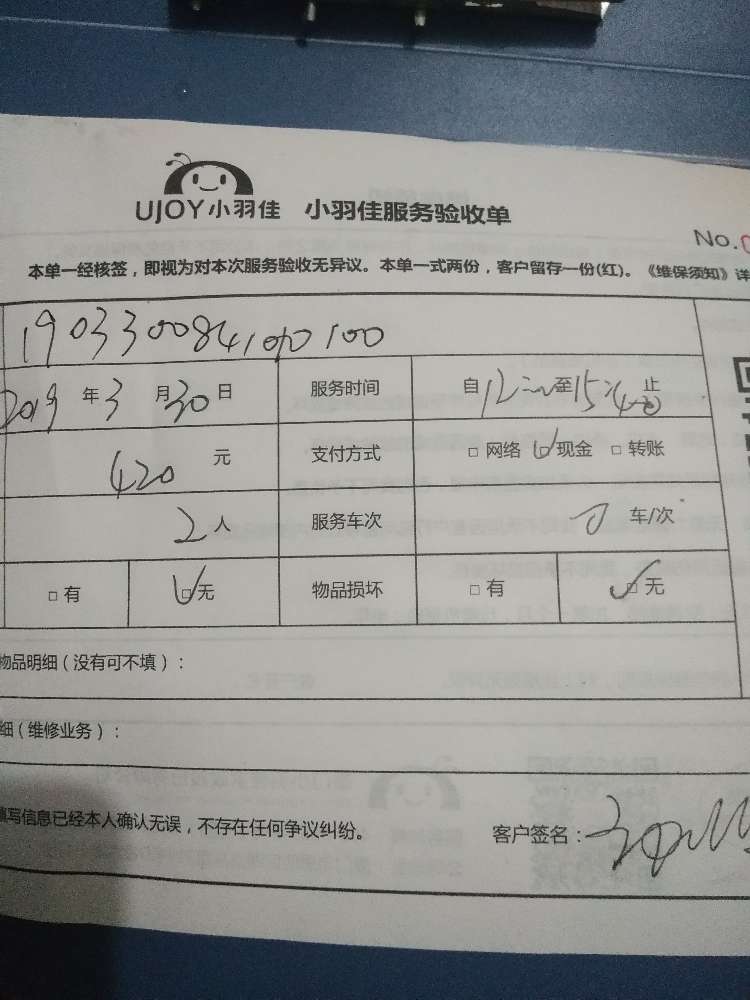 UJOY小羽佳 小羽佳服务验收单
No.
本单一经核签，即视为对本次服务验收无异议。本单一式两份，客户留存一份(红)。《维保须知》详
2019年3月30日 服务时间 自12 至15 止
420元 支付方式 □ 网络 □ 现金 □ 转账
2人 服务车次 车/次
□ 有 □ 无 物品损坏 □ 有 □ 无
物品明细（没有可不填）：
细（维修业务）：
填写信息已经本人确认无误，不存在任何争议纠纷。 客户签名：